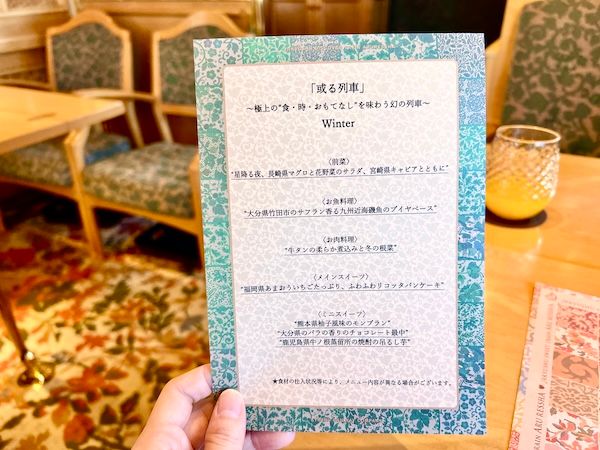 「或る列車」
〜極上の"食・時・おもてなし"を味わう幻の列車〜
Winter
〈前菜〉
"星降る夜、長崎県マグロと花野菜のサラダ、宮崎県キャビアとともに"
〈お魚料理〉
"大分県竹田市のサフラン香る九州近海磯魚のブイヤベース"
〈お肉料理〉
"牛タンの柔らか煮込みと冬の根菜"
〈メインスイーツ〉
"福岡県あまおういちごたっぷり、ふわふわリコッタパンケーキ"
〈ミニスイーツ〉
"熊本県柚子風味のモンブラン"
"大分県のバラの香りのチョコレート最中"
"鹿児島県牛ノ根蒸留所の焼酎の吊るし芋"
★食材の仕入状況等により、メニュー内容が異なる場合がございます。
TRAIN ARU RESSHA